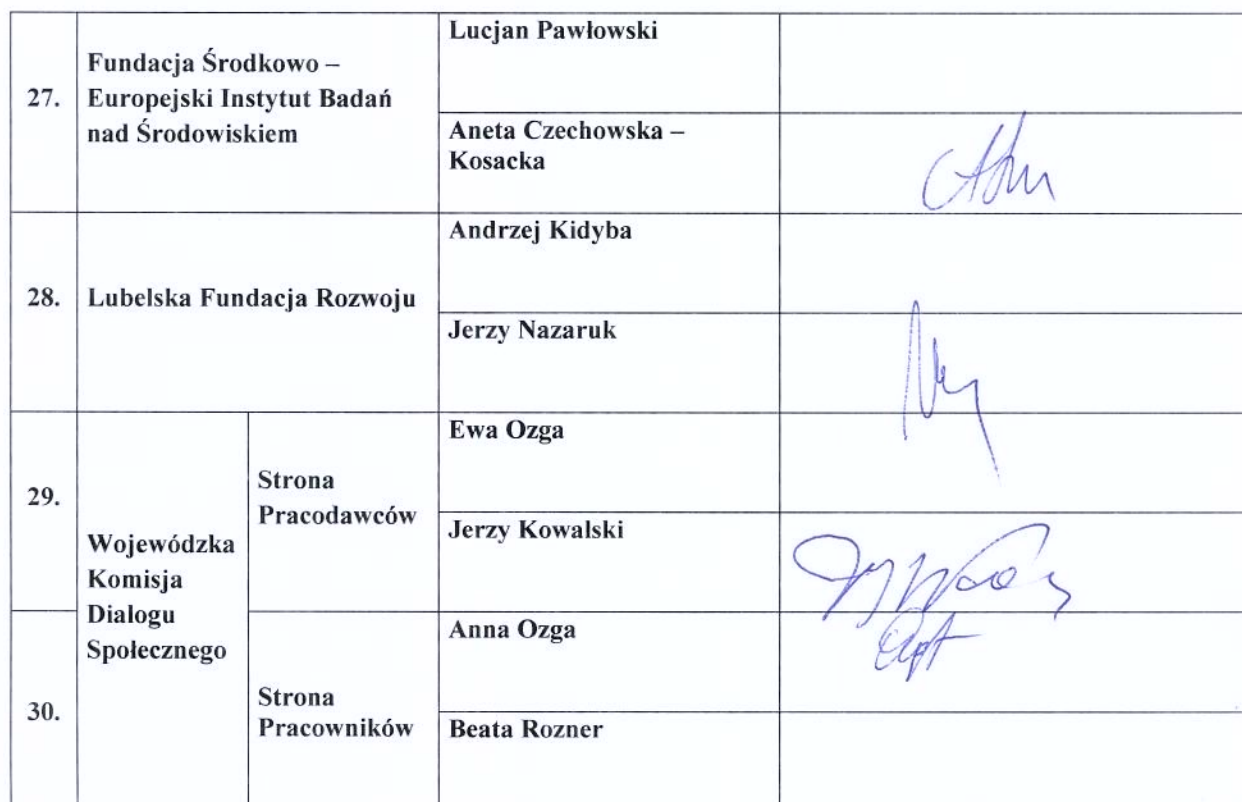 27.
Fundacja Środkowo –
Europejski Instytut Badań
nad Środowiskiem
Lucjan Pawłowski
Aneta Czechowska –
Kosacka
28.
Lubelska Fundacja Rozwoju
Andrzej Kidyba
Jerzy Nazaruk
29.
Wojewódzka
Komisja
Dialogu
Społecznego
Strona
Pracodawców
Ewa Ozga
Jerzy Kowalski
30.
Strona
Pracowników
Anna Ozga
Beata Rozner